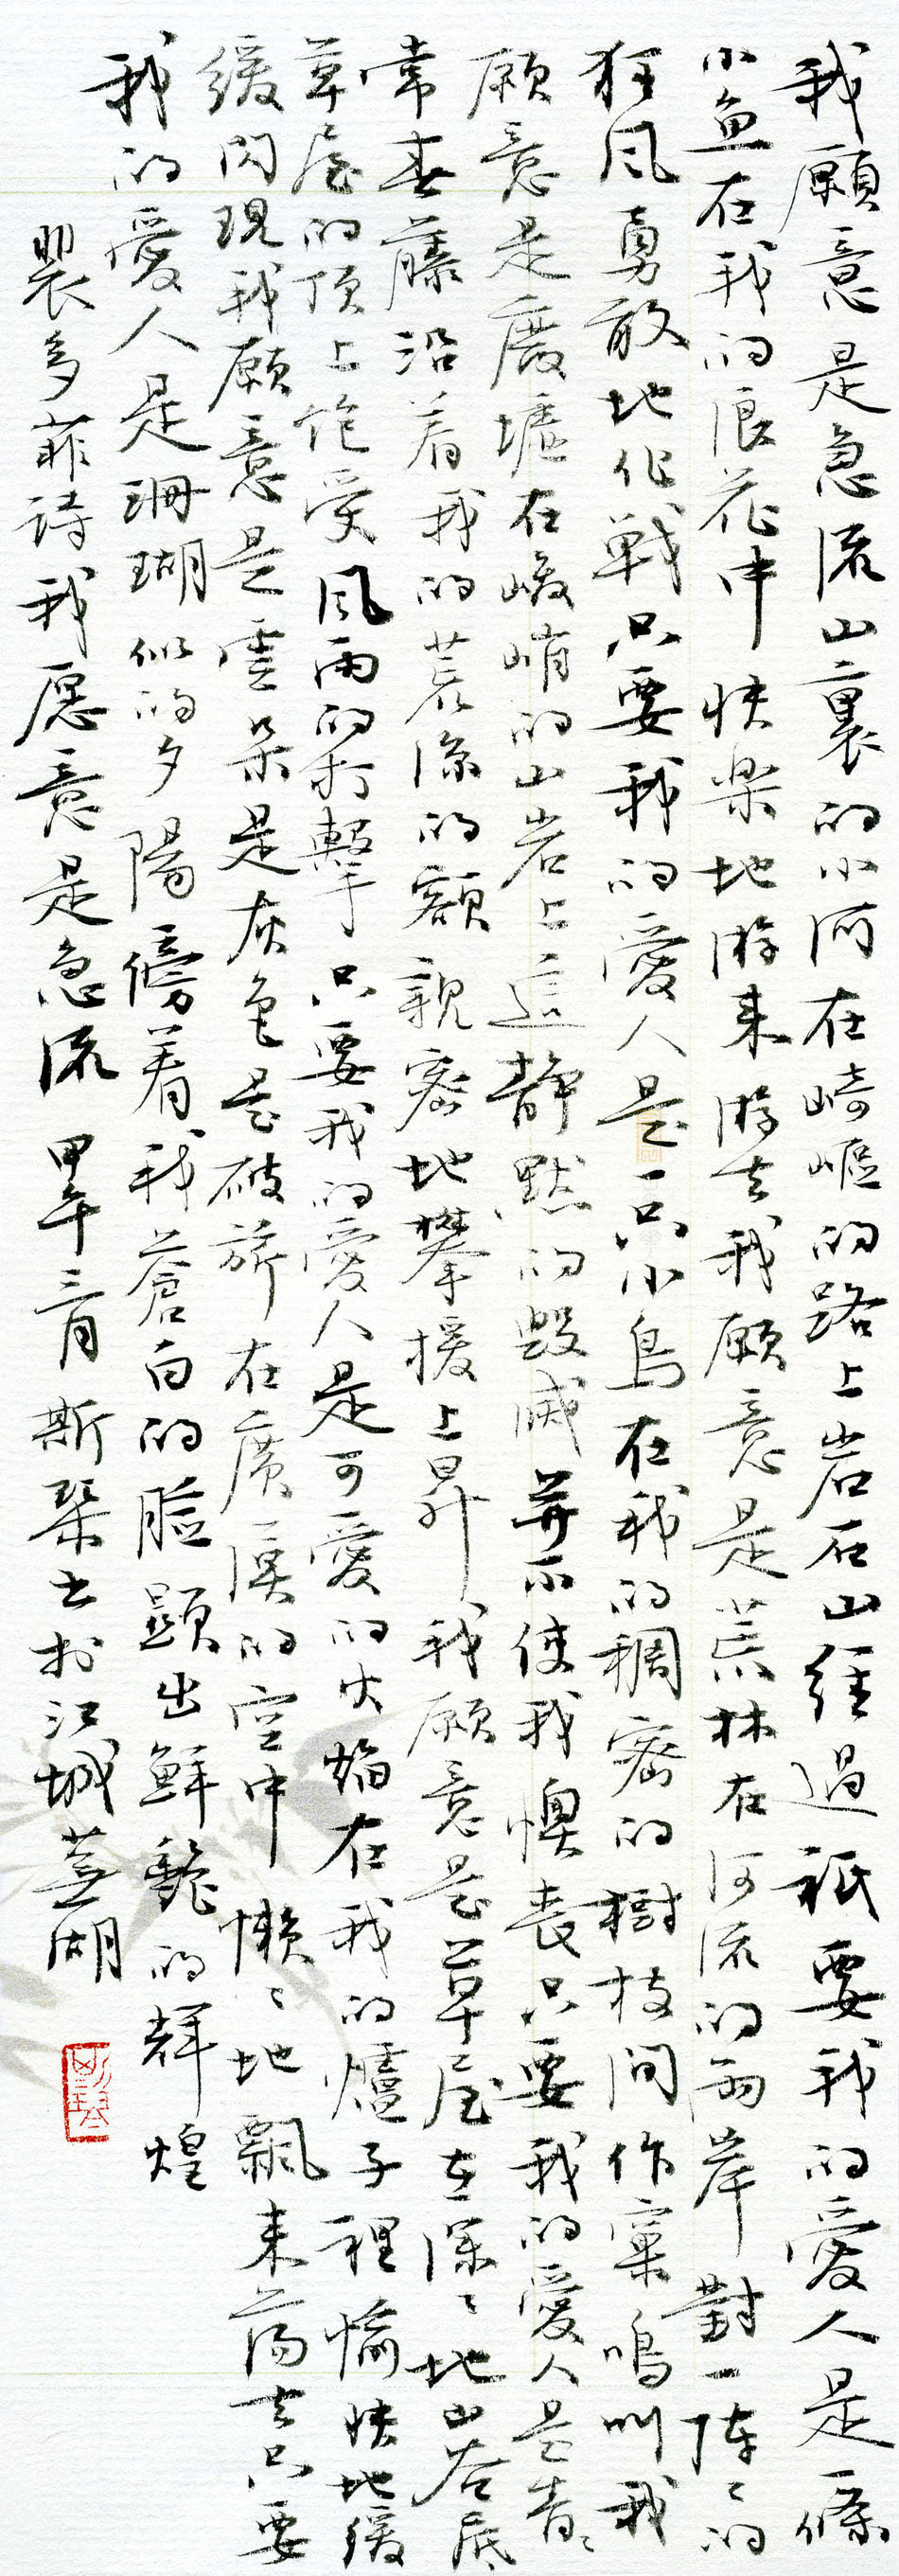 我願意是急流山裏的小河在崎嶇的路上岩石山經過祇要我的愛人是一條
小魚在我的浪花中快樂地游来游去我願意是荒林在河流的兩岸對一陣〻的
狂風勇敢地作戰只要我的愛人是一只小鳥在我的稠密的樹枝間作窠鳴叫我
願意是廢墟在峻峭的山岩上這靜默的毀滅并不使我懊丧只要我的愛人是青〻
常春藤沿着我的荒涼的額親密地攀援上昇我願意是草屋在深〻地山谷底
草屋的頂上飽受風雨的打擊只要我的愛人是可愛的火焰在我的爐子裡愉快地缓
缓閃現我願意是雲朵是灰色是破旂在廣漠的空中懒〻地飄来荡去只要
我的愛人是珊瑚似的夕陽傍着我蒼白的脸顯出鮮艶的輝煌
裴多菲詩我愿意是急流 甲午三月斯琹书於江城蕪湖